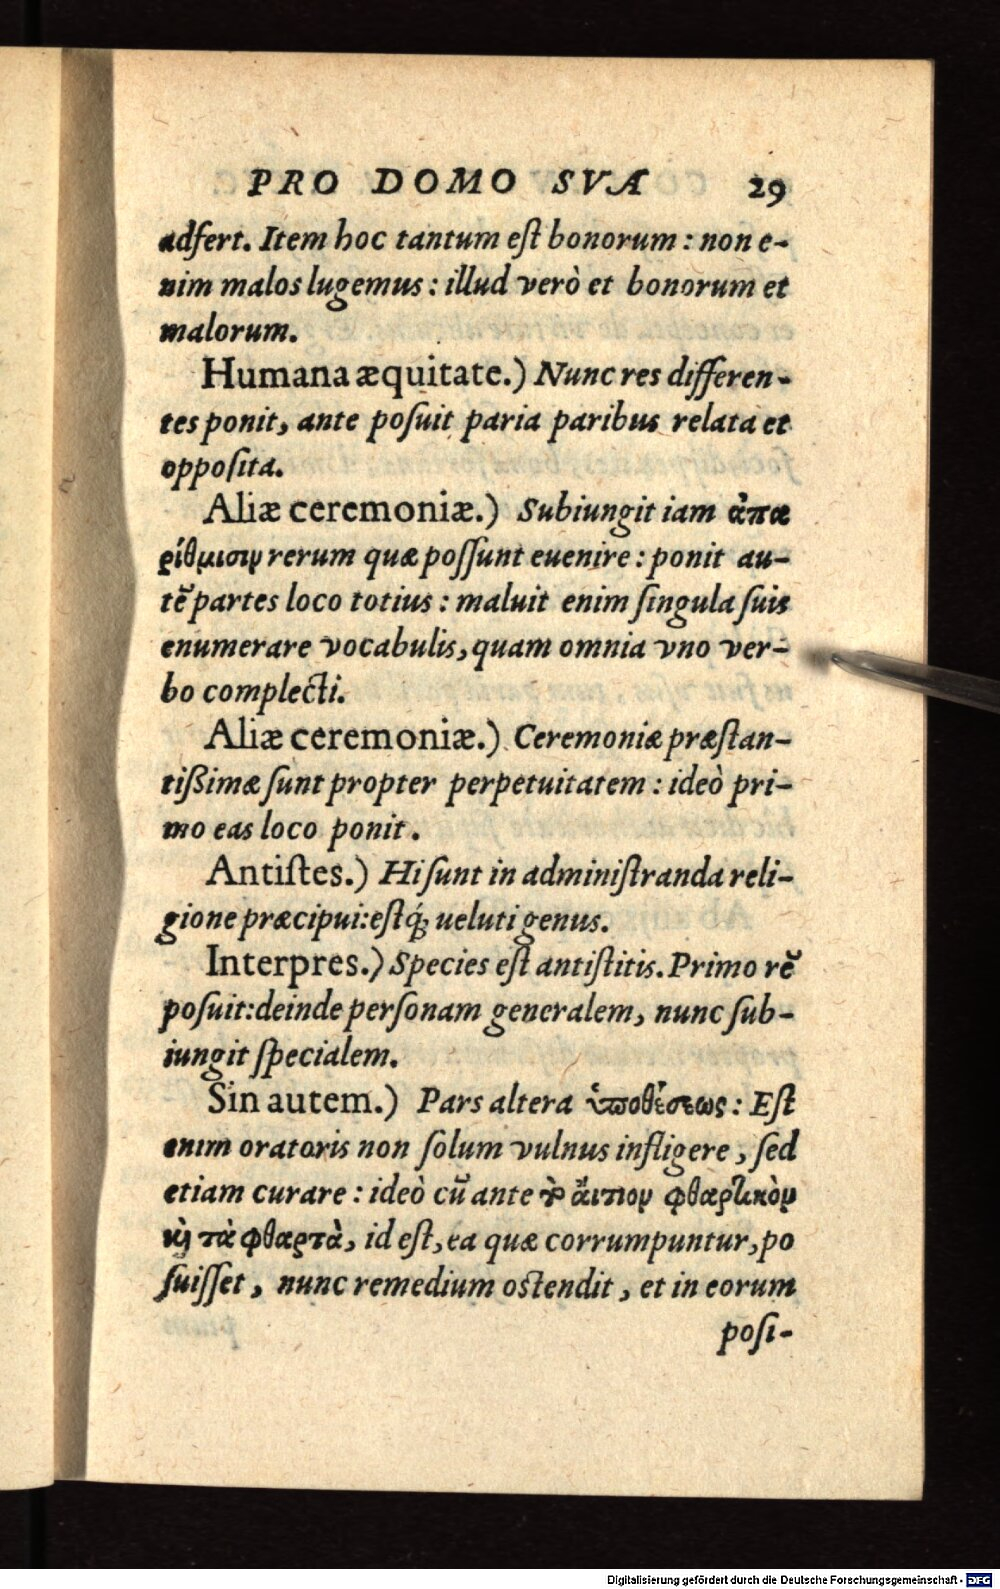 PRO DOMO SVA 29
adfert. Item hoc tantum eſt bonorum: non e-
nim malos lugemus: illud verò et bonorum et
malorum.
Humana æquitate.) Nunc res differen-
tes ponit, ante poſuit paria paribus relata et
oppoſita.
Aliæ ceremoniæ.) Subiungit iam ἀπα
ρίθμισιν rerum quæ poſſunt euenire: ponit au-
tē partes loco totius: maluit enim ſingula ſuis
enumerare vocabulis, quam omnia vno ver-
bo complecti.
Aliæ ceremoniæ.) Ceremoniæ præſtan-
tißimæ ſunt propter perpetuitatem: ideò pri-
mo eas loco ponit.
Antiſtes.) Hi ſunt in adminiſtranda reli-
gione præcipui: eſtq́; ueluti genus.
Interpres.) Species eſt antiſtitis. Primo rē
poſuit: deinde perſonam generalem, nunc ſub-
iungit ſpecialem.
Sin autem.) Pars altera ὑποθέσεως: Eſt
enim oratoris non ſolum vulnus infligere, ſed
etiam curare: ideò cū ante τὸ ἄιτιον φθαρτικὸν
καὶ τὰ φθαρτὰ, id eſt, ea quæ corrumpuntur, po
ſuiſſet, nunc remedium oſtendit, et in eorum
poſi-
Digitalisierung gefördert durch die Deutsche Forschungsgemeinschaft - DFG